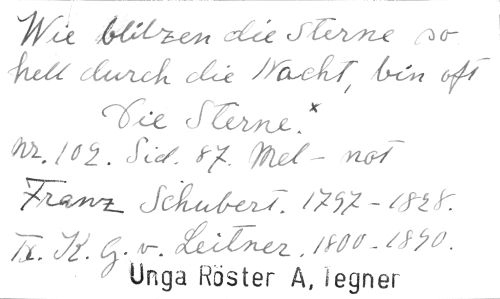 Wie blitzen die Sterne so
hell durch die Nacht, bin oft
Die Sterne.x
Nr. 102. Sid. 87. Mel- not
Franz Schubert. 1797-1828.
Tx. K. G. v. Leitner. 1800-1890.
Unga Röster A, Tegner